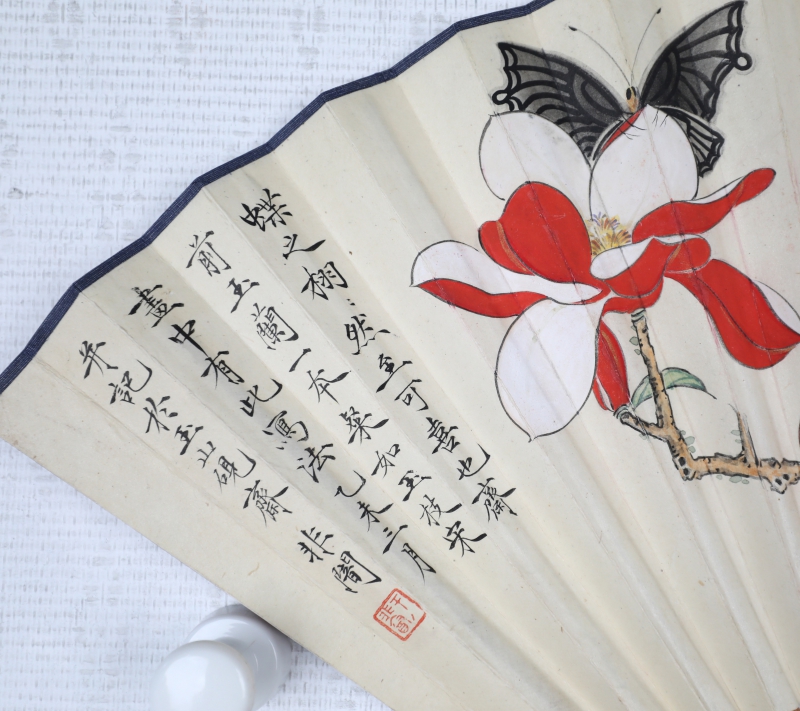 蝶之栩＝然至可喜也齋
前玉蘭一本粲如玉枝宋
畫中有此寫法乙未三月
并記於玉山硯齋 非闇